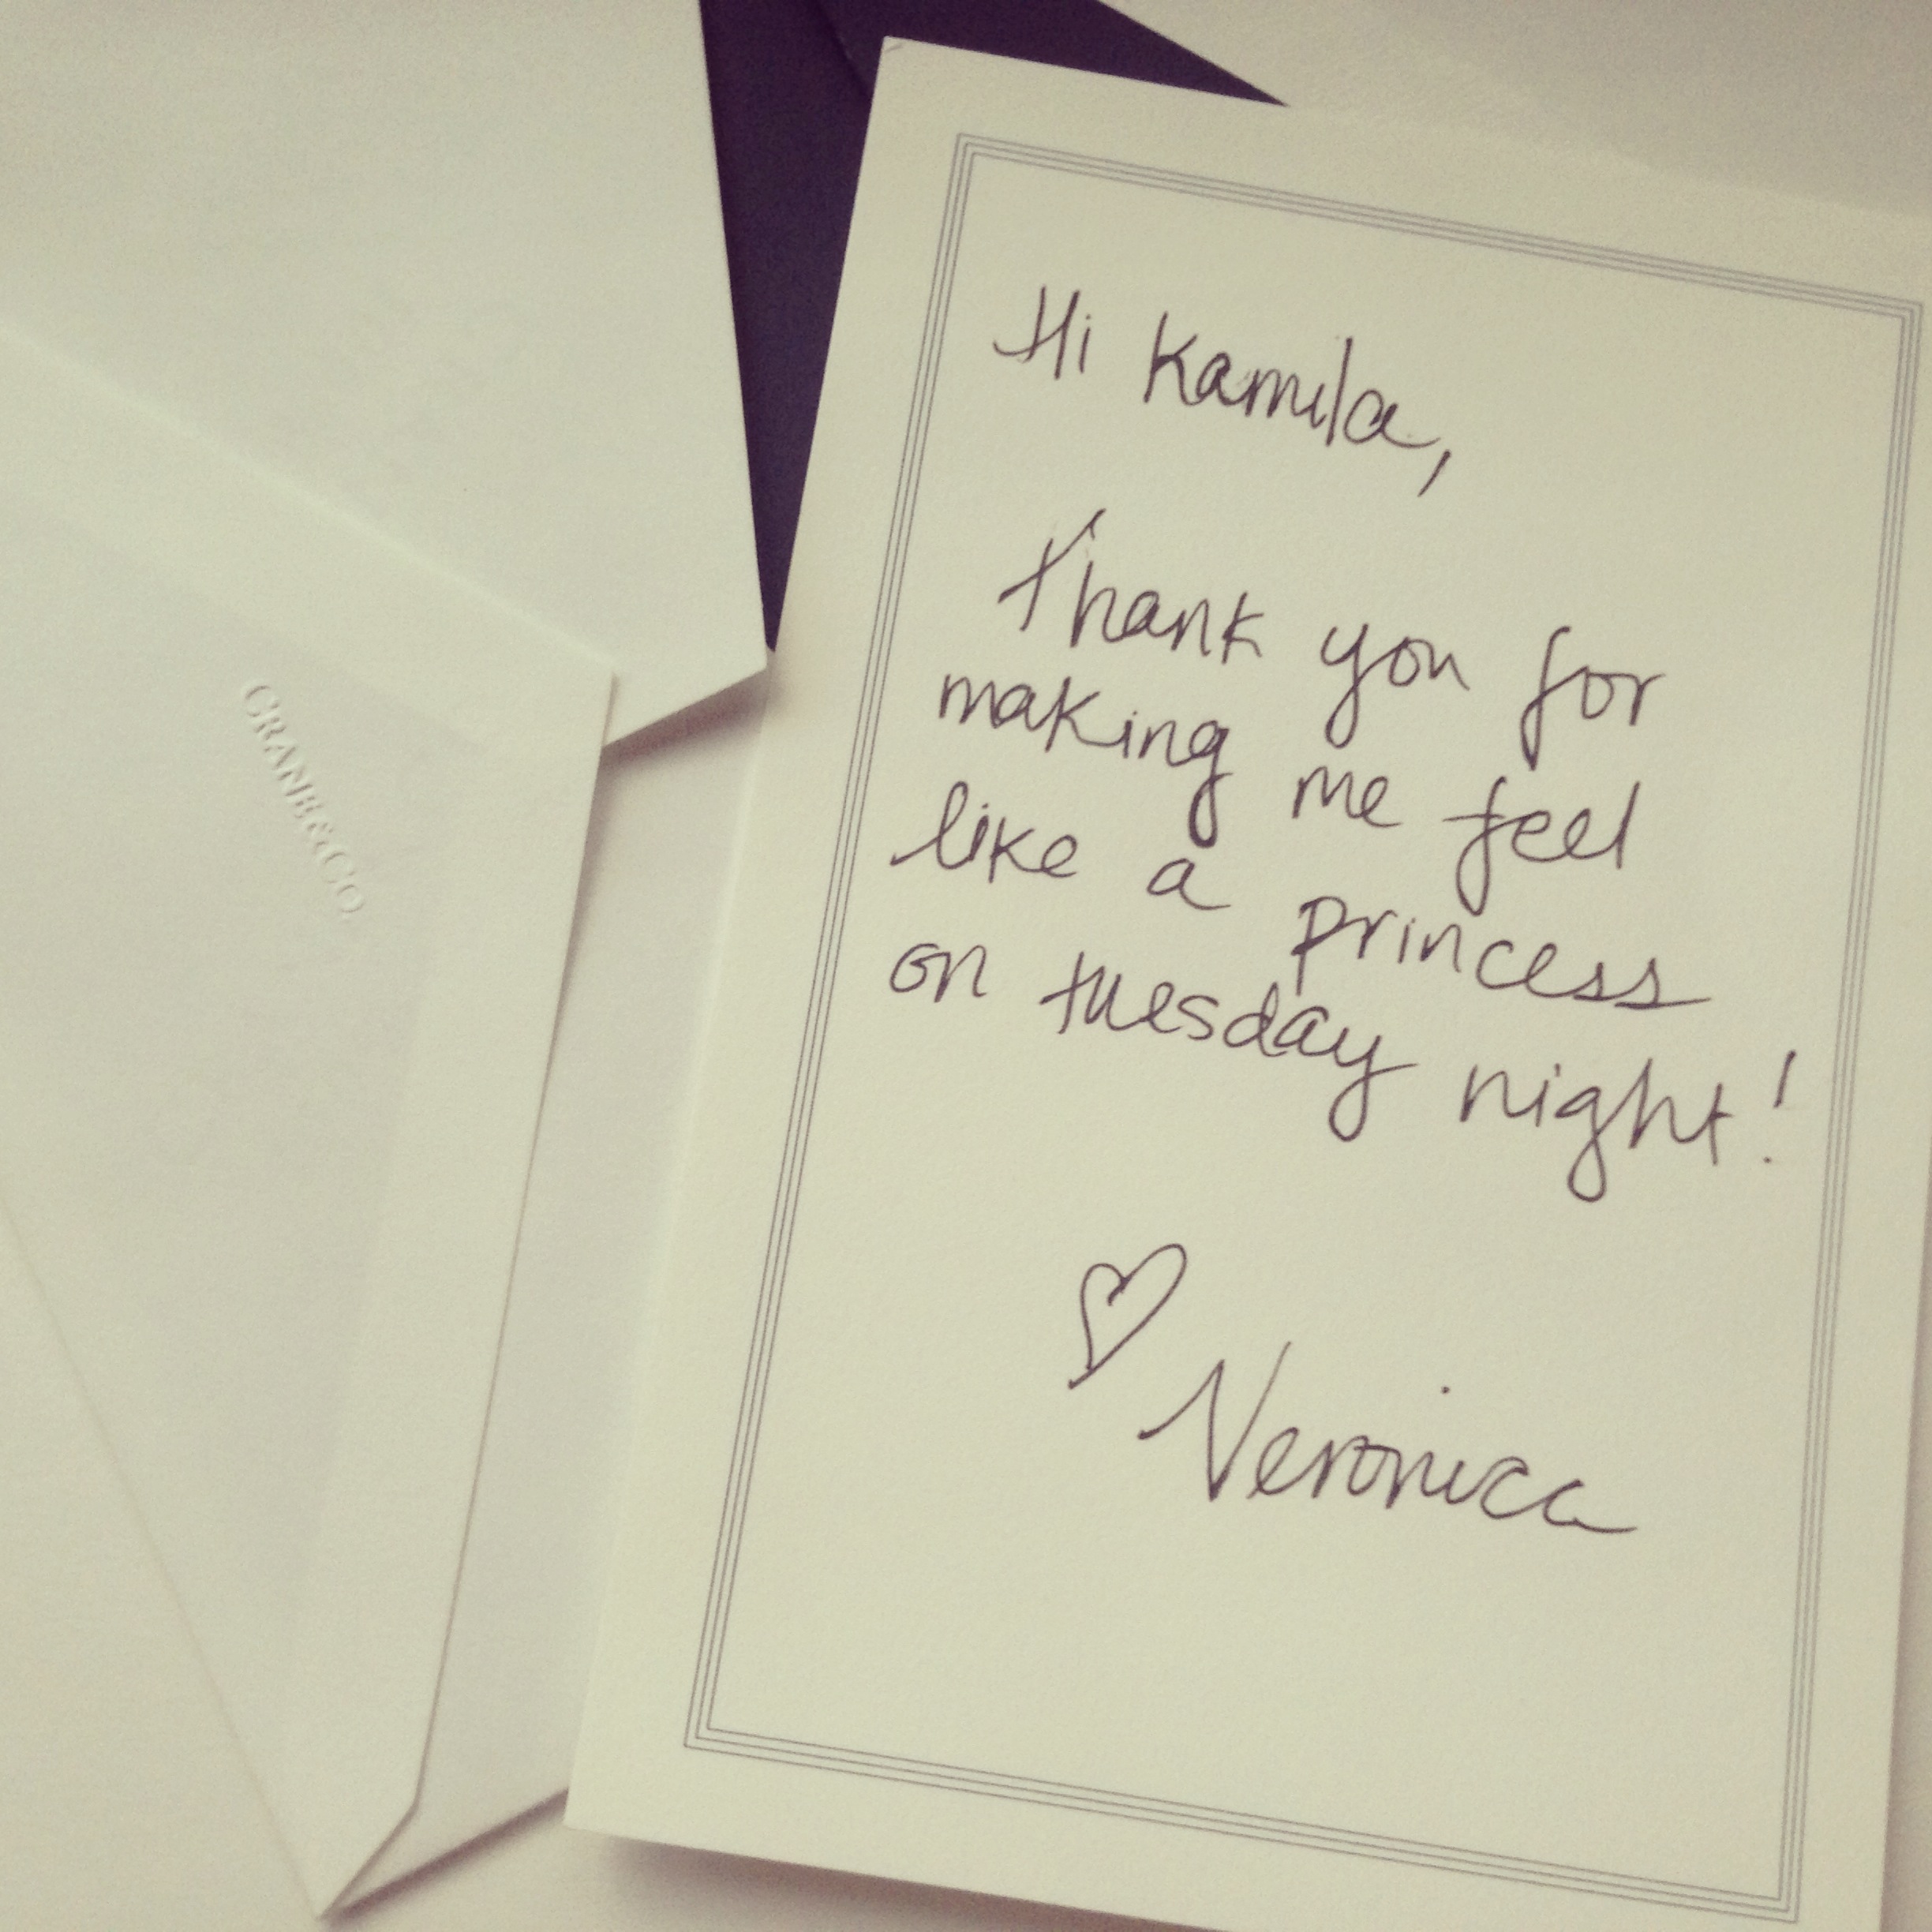 CRANE&CO.
Hi Kamila,
Thank you for
making me feel
like a princess
on tuesday night!
♡ Veronica